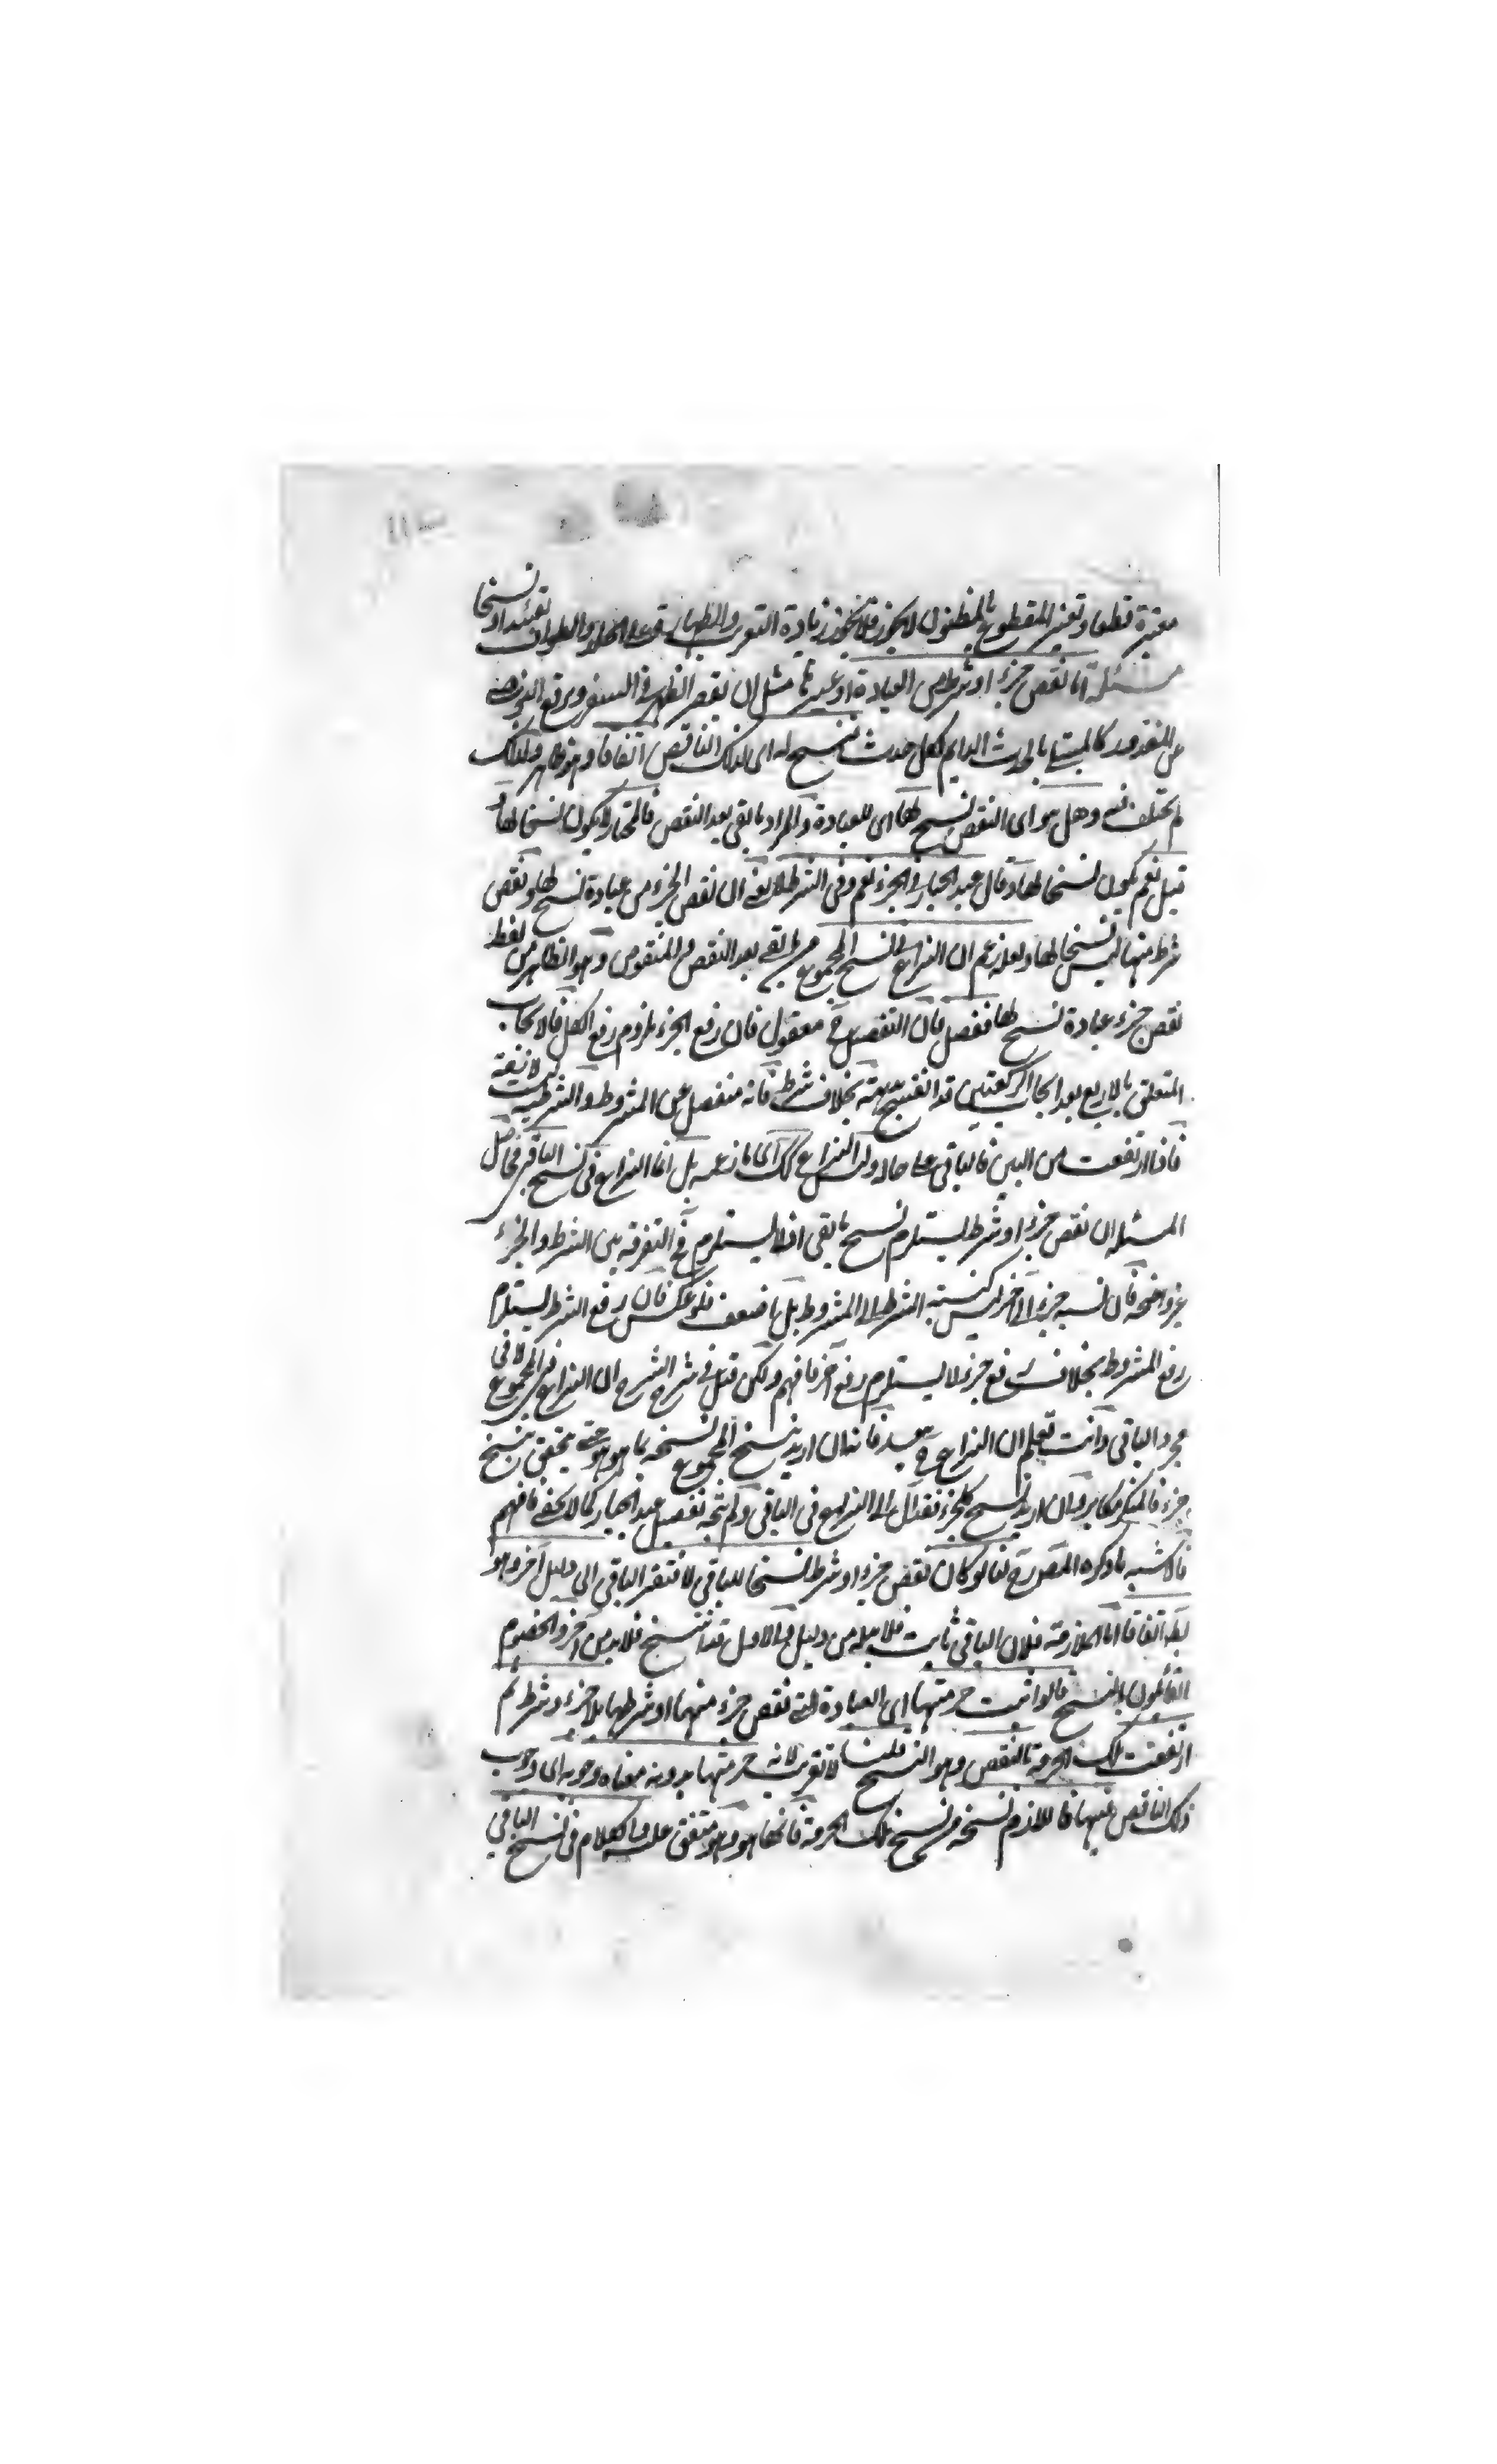 معتبرة قطعا وتغيير المقطوع بالمظنون لا يجوز فلا يجوز زيادة التغريب والطهارة على الجلد والطواف تقييدا ونسخا
مسئلة اما نقص جزء او شرط من العبادة او غيرها مثل ان يقصر الظهر في السفر ويرفع الوضوء
عن المعذور كالمبتلى بالحدث الدايم لكل حدث نسخ له اى لذلك الناقص اتفاقا وهو ظاهر ولذلك
لم يختلف فيه وهل هو اى النقص نسخ لها اى للعبادة والمراد ما بقى بعد النقص فالمختار لا يكون نسخا لها
قيل نعم يكون نسخا لها وقال عبد الجبار في الجزء نعم وفى الشرط لا يعنى ان نقص الجزء من عبادة نسخ لها ونقص
شرط منها ليس نسخا لها ولعله زعم ان النزاع في نسخ المجموع مما بقى بعد النقص والمنقوص وهو الظاهر من لفظ
نقص جزء عبادة نسخ لها ففصل فان التفصيل ح معقول فان رفع الجزء ملزوم رفع الكل فالايجاب
المتعلق بالاربع بعد ايجاب الركعتين قد انفسخ بخلاف شرط فانه منفصل عن المشروط والشرطية ليست لانفة
فاذا ارتفعت من البين فالباقى على حاله وليس النزاع كذلك اى ما زعمه بل انما النزاع في نسخ الباقى فحاصل
المسئلة ان نقص جزء او شرط يستلزم نسخ ما بقى او لا يستلزم فح التفرقة بين الشرط والجزء
غير واضحة فان نسبة جزء الى آخر ليس كنسبة الشرط الى المشروط بل اضعف فلو عكس فان رفع الشرط يستلزم
رفع المشروط بخلاف رفع جزء لا يستلزم رفع آخر فافهم ولكن قيل في شرح الشرح ان النزاع في المجموع لا فى
مجرد الباقى وانت تعلم ان النزاع فيه بعيد فانه ان اريد بنسخ المجموع نسخه بما هو هو حتى يتحقق بنسخ
جزء فالمنكر مكابر وان اريد نسخ كل جزء فقد آل الى النزاع فى الباقى ولم يتجه تفصيل عبد الجبار كما لا يخفى فافهم
فالاشبه ما ذكره المصنف رح لنا لو كان نقص جزء او شرط نسخا للباقى لافتقر الباقى الى دليل آخر وهو
بط اتفاقا اما الملازمة فلان الباقى ثابت فلا بد له من دليل والاول قد انتسخ فلا بد من آخر والخصوم
القائلون بالنسخ قالوا ثبت حرمتها اى العبادة التى نقص جزء منها او شرطها بلا جزء وشرط ثم
ارتفعت تلك الحرمة بالنقص وهو النسخ قلنا لا تقريب لانه حرمتها بدونه معناه وجوبه اى وجوب
ذلك الناقص فيها فاللازم نسخه من نسخ تلك الحرمة فانها هو وهو متفق عليه والكلام فى نسخ الباقى